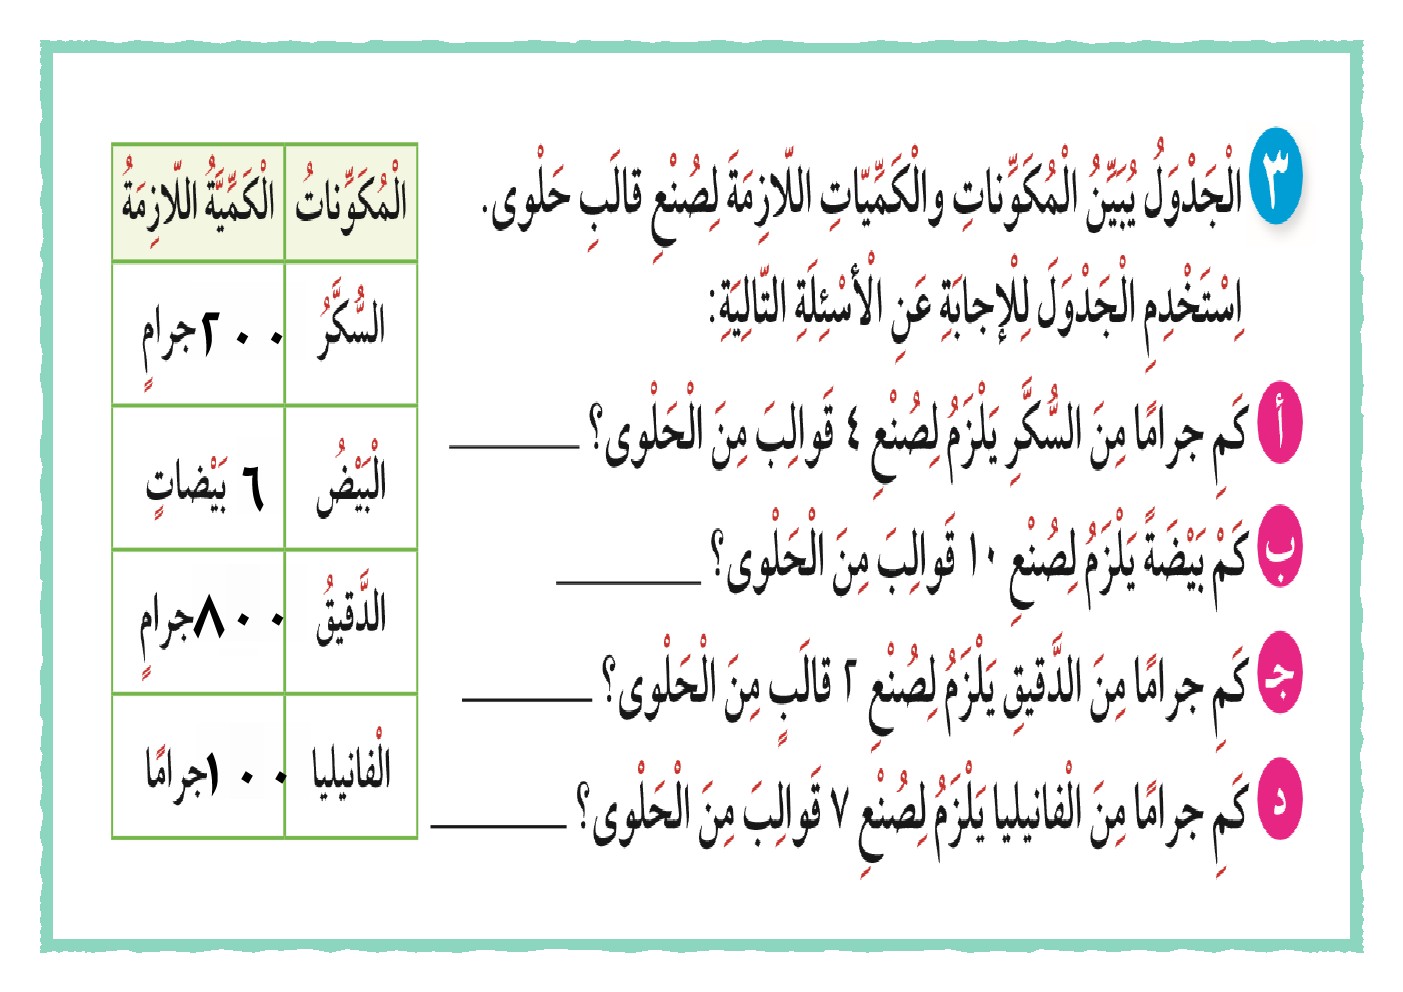 ٣ الْجَدْوَلُ يُبَيِّنُ الْمُكَوِّناتِ والْكَمِّيّاتِ اللّازِمَةَ لِصُنْعِ قالَبِ حَلْوى.
اِسْتَخْدِمِ الْجَدْوَلَ لِلْإجابَةِ عَنِ الْأسْئِلَةِ التّالِيَةِ:
أ كَمِ جرامًا مِنَ السُّكَّرِ يَلْزَمُ لِصُنْعِ ٤ قَوالِبَ مِنَ الْحَلْوى؟
ب كَمْ بَيْضَةً يَلْزَمُ لِصُنْعِ ١٠ قَوالِبَ مِنَ الْحَلْوى؟
جـ كَمِ جرامًا مِنَ الدَّقيقِ يَلْزَمُ لِصُنْعِ ٢ قالَبٍ مِنَ الْحَلْوى؟
د كَمِ جرامًا مِنَ الْفانيليا يَلْزَمُ لِصُنْعِ ٧ قَوالِبَ مِنَ الْحَلْوى؟
الْمُكَوِّناتُ الْكَمِّيَّةُ اللّازِمَةُ
السُّكَّرُ ٢٠٠ جرامٍ
الْبَيْضُ ٦ بَيْضاتٍ
الدَّقيقُ ٨٠٠ جرامٍ
الْفانيليا ١٠٠ جرامًا